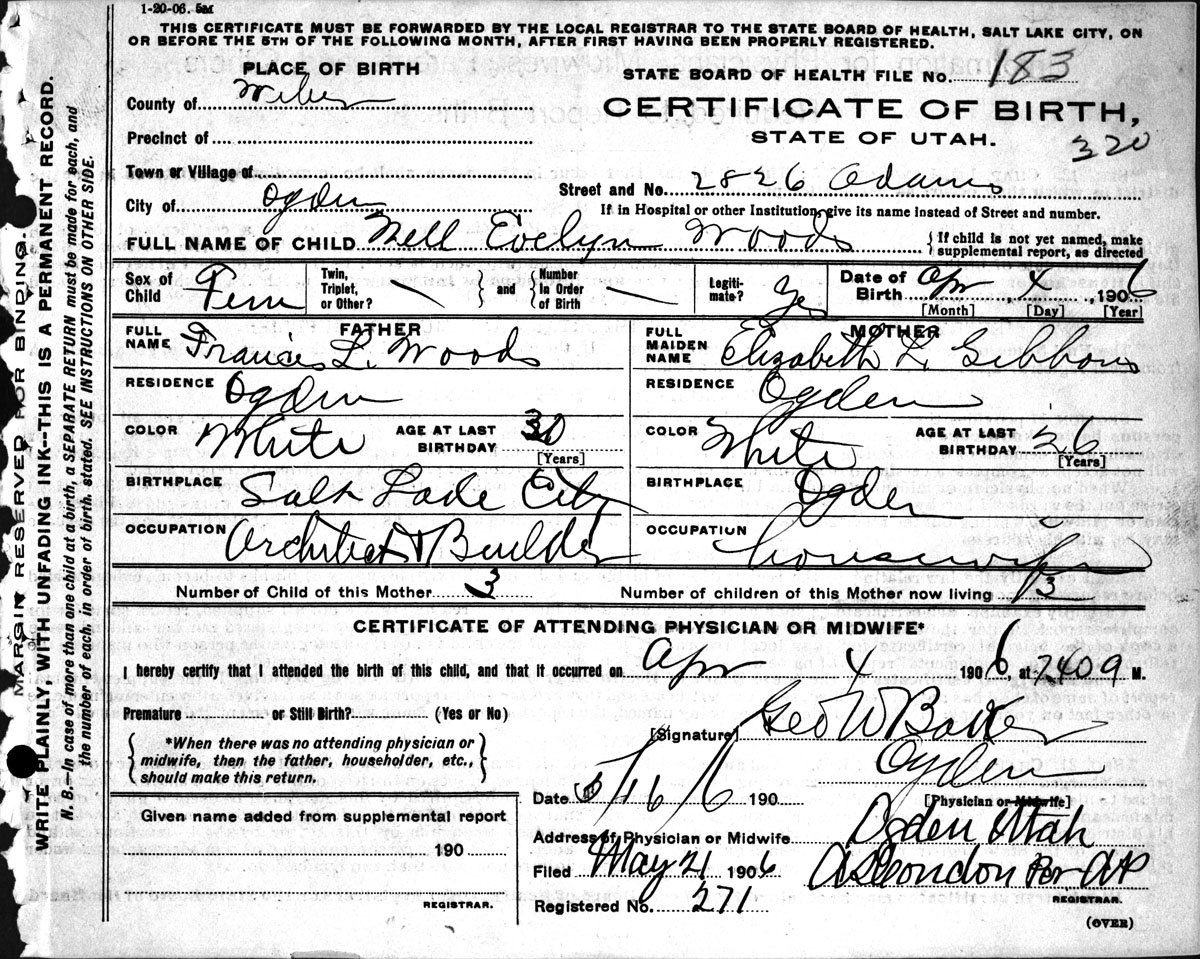 1-20-06. 5M
THIS CERTIFICATE MUST BE FORWARDED BY THE LOCAL REGISTRAR TO THE STATE BOARD OF HEALTH, SALT LAKE CITY, ON
OR BEFORE THE 5TH OF THE FOLLOWING MONTH, AFTER FIRST HAVING BEEN PROPERLY REGISTERED.
MARGIN RESERVED FOR BINDING.
WRITE PLAINLY, WITH UNFADING INK--THIS IS A PERMANENT RECORD.
N. B.--In case of more than one child at a birth, a SEPARATE RETURN must be made for each, and
the number of each, in order of birth, stated. SEE INSTRUCTIONS ON OTHER SIDE.
PLACE OF BIRTH
STATE BOARD OF HEALTH FILE No. 183
County of Weber
CERTIFICATE OF BIRTH,
Precinct of
STATE OF UTAH.
320
Town or Village of
Street and No. 2826 Adams
City of Ogden
If in Hospital or other Institution, give its name instead of Street and number.
FULL NAME OF CHILD Nell Evelyn Woods
If child is not yet named, make
supplemental report, as directed
Sex of Child Fem
Twin, Triplet, or Other?
and
Number In Order of Birth
Legiti-mate? Yes
Date of Birth Apr 4, 1906
[Month] [Day] [Year]
FATHER
MOTHER
FULL NAME Francis L. Woods
FULL MAIDEN NAME Elizabeth L. Gibbons
RESIDENCE Ogden
RESIDENCE Ogden
COLOR White AGE AT LAST BIRTHDAY 30 [Years]
COLOR White AGE AT LAST BIRTHDAY 26 [Years]
BIRTHPLACE Salt Lade City
BIRTHPLACE Ogden
OCCUPATION Architect & Builder
OCCUPATION housewife
Number of Child of this Mother 3
Number of children of this Mother now living 3
CERTIFICATE OF ATTENDING PHYSICIAN OR MIDWIFE*
I hereby certify that I attended the birth of this child, and that it occurred on Apr 4 1906, at M.
Premature or Still Birth? (Yes or No)
[Signature] Geo W Baker
*When there was no attending physician or
midwife, then the father, householder, etc.,
should make this return.
Ogden
[Physician or Midwife]
Date 5/16/6 190
Given name added from supplemental report
190
REGISTRAR.
Address of Physician or Midwife Ogden Utah
Filed May 21 1906
Per
REGISTRAR.
Registered No. 271
(OVER)